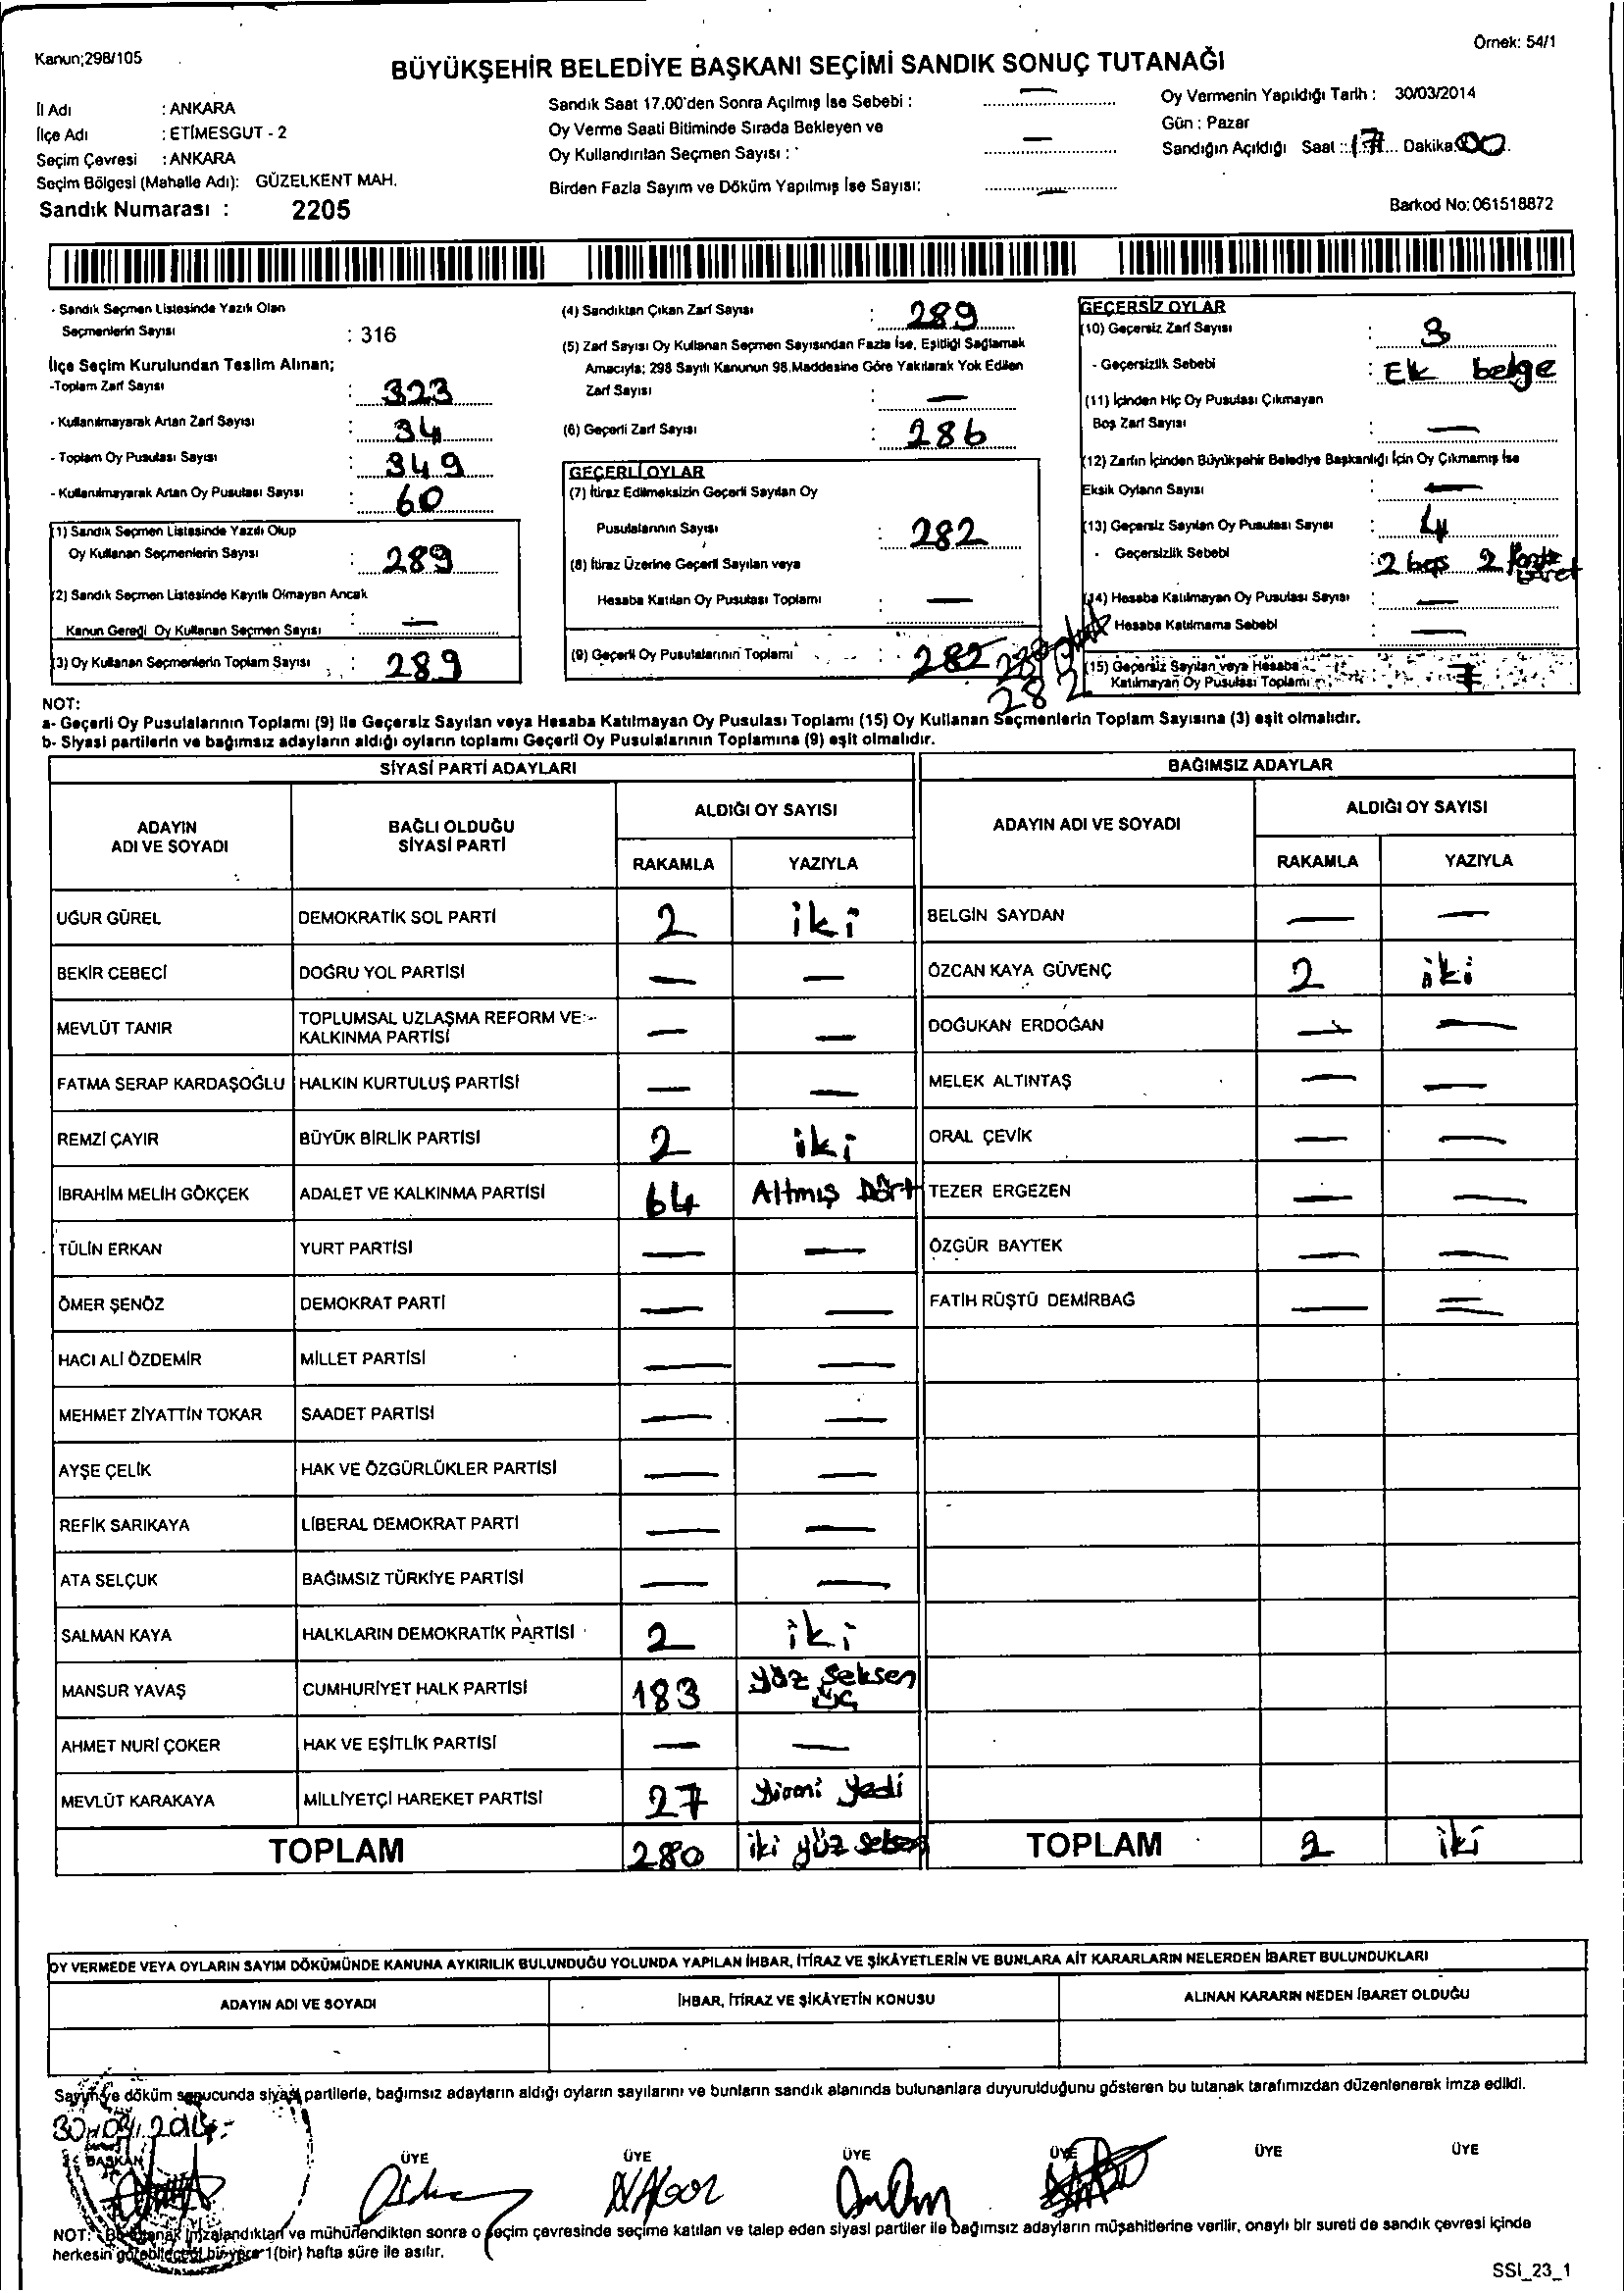 Kanun;298/105
Örnek: 54/1
BÜYÜKŞEHİR BELEDİYE BAŞKANI SEÇİMİ SANDIK SONUÇ TUTANAĞI
İl Adı : ANKARA
İlçe Adı : ETİMESGUT - 2
Seçim Çevresi : ANKARA
Seçim Bölgesi (Mahalle Adı): GÜZELKENT MAH.
Sandık Numarası : 2205
Sandık Saat 17.00'den Sonra Açılmış İse Sebebi : —
Oy Verme Saati Bitiminde Sırada Bekleyen ve
Oy Kullandırılan Seçmen Sayısı : —
Birden Fazla Sayım ve Döküm Yapılmış İse Sayısı: —
Oy Vermenin Yapıldığı Tarih : 30/03/2014
Gün : Pazar
Sandığın Açıldığı Saat : 17 Dakika: 00
Barkod No: 061518872
- Sandık Seçmen Listesinde Yazılı Olan
Seçmenlerin Sayısı : 316
İlçe Seçim Kurulundan Teslim Alınan;
-Toplam Zarf Sayısı : 323
- Kullanılmayarak Artan Zarf Sayısı : 34
- Toplam Oy Pusulası Sayısı : 349
- Kullanılmayarak Artan Oy Pusulası Sayısı : 60
(1) Sandık Seçmen Listesinde Yazılı Olup
Oy Kullanan Seçmenlerin Sayısı : 289
(2) Sandık Seçmen Listesinde Kayıtlı Olmayan Ancak
Kanun Gereği Oy Kullanan Seçmen Sayısı : —
(3) Oy Kullanan Seçmenlerin Toplam Sayısı : 289
(4) Sandıktan Çıkan Zarf Sayısı : 289
(5) Zarf Sayısı Oy Kullanan Seçmen Sayısından Fazla İse, Eşitliği Sağlamak
Amacıyla; 298 Sayılı Kanunun 98.Maddesine Göre Yakılarak Yok Edilen
Zarf Sayısı : —
(6) Geçerli Zarf Sayısı : 286
GEÇERLİ OYLAR
(7) İtiraz Edilmeksizin Geçerli Sayılan Oy
Pusulalarının Sayısı : 282
(8) İtiraz Üzerine Geçerli Sayılan veya
Hesaba Katılan Oy Pusulası Toplamı : —
(9) Geçerli Oy Pusulalarının Toplamı : 282
282
GEÇERSİZ OYLAR
(10) Geçersiz Zarf Sayısı : 3
- Geçersizlik Sebebi : Ek belge
(11) İçinden Hiç Oy Pusulası Çıkmayan
Boş Zarf Sayısı : —
(12) Zarfın İçinden Büyükşehir Belediye Başkanlığı İçin Oy Çıkmamış İse
Eksik Oyların Sayısı : —
(13) Geçersiz Sayılan Oy Pusulası Sayısı : 4
- Geçersizlik Sebebi : 2 boş 2
(14) Hesaba Katılmayan Oy Pusulası Sayısı : —
Hesaba Katılmama Sebebi : —
(15) Geçersiz Sayılan veya Hesaba
Katılmayan Oy Pusulası Toplamı : 7
NOT:
a- Geçerli Oy Pusulalarının Toplamı (9) ile Geçersiz Sayılan veya Hesaba Katılmayan Oy Pusulası Toplamı (15) Oy Kullanan Seçmenlerin Toplam Sayısına (3) eşit olmalıdır.
b- Siyasi partilerin ve bağımsız adayların aldığı oyların toplamı Geçerli Oy Pusulalarının Toplamına (9) eşit olmalıdır.
SİYASİ PARTİ ADAYLARI
ADAYIN ADI VE SOYADI BAĞLI OLDUĞU SİYASİ PARTİ ALDIĞI OY SAYISI
RAKAMLA YAZIYLA
UĞUR GÜREL DEMOKRATİK SOL PARTİ 2 iki
BEKİR CEBECİ DOĞRU YOL PARTİSİ — —
MEVLÜT TANIR TOPLUMSAL UZLAŞMA REFORM VE KALKINMA PARTİSİ — —
FATMA SERAP KARDAŞOĞLU HALKIN KURTULUŞ PARTİSİ — —
REMZİ ÇAYIR BÜYÜK BİRLİK PARTİSİ 2 iki
İBRAHİM MELİH GÖKÇEK ADALET VE KALKINMA PARTİSİ 64 Altmış Dört
TÜLİN ERKAN YURT PARTİSİ — —
ÖMER ŞENÖZ DEMOKRAT PARTİ — —
HACI ALİ ÖZDEMİR MİLLET PARTİSİ — —
MEHMET ZİYATTİN TOKAR SAADET PARTİSİ — —
AYŞE ÇELİK HAK VE ÖZGÜRLÜKLER PARTİSİ — —
REFİK SARIKAYA LİBERAL DEMOKRAT PARTİ — —
ATA SELÇUK BAĞIMSIZ TÜRKİYE PARTİSİ — —
SALMAN KAYA HALKLARIN DEMOKRATİK PARTİSİ 2 iki
MANSUR YAVAŞ CUMHURİYET HALK PARTİSİ 183 yüz seksen üç
AHMET NURİ ÇOKER HAK VE EŞİTLİK PARTİSİ — —
MEVLÜT KARAKAYA MİLLİYETÇİ HAREKET PARTİSİ 27 yirmi yedi
TOPLAM 280 iki yüz seksen
BAĞIMSIZ ADAYLAR
ADAYIN ADI VE SOYADI ALDIĞI OY SAYISI
RAKAMLA YAZIYLA
BELGİN SAYDAN — —
ÖZCAN KAYA GÜVENÇ 2 iki
DOĞUKAN ERDOĞAN — —
MELEK ALTINTAŞ — —
ORAL ÇEVİK — —
TEZER ERGEZEN — —
ÖZGÜR BAYTEK — —
FATİH RÜŞTÜ DEMİRBAĞ — —
TOPLAM 2 iki
OY VERMEDE VEYA OYLARIN SAYIM DÖKÜMÜNDE KANUNA AYKIRILIK BULUNDUĞU YOLUNDA YAPILAN İHBAR, İTİRAZ VE ŞİKÂYETLERİN VE BUNLARA AİT KARARLARIN NELERDEN İBARET BULUNDUKLARI
ADAYIN ADI VE SOYADI İHBAR, İTİRAZ VE ŞİKÂYETİN KONUSU ALINAN KARARIN NEDEN İBARET OLDUĞU
Sayım ve döküm sonucunda siyasi partilerle, bağımsız adayların aldığı oyların sayılarını ve bunların sandık alanında bulunanlara duyurulduğunu gösteren bu tutanak tarafımızdan düzenlenerek imza edildi.
30.03.2014
BAŞKAN ÜYE ÜYE ÜYE ÜYE ÜYE ÜYE
NOT: Bu tutanak imzalandıktan ve mühürlendikten sonra o seçim çevresinde seçime katılan ve talep eden siyasi partiler ile bağımsız adayların müşahitlerine verilir, onaylı bir sureti de sandık çevresi içinde
herkesin görebileceği bir yere 1(bir) hafta süre ile asılır.
SSI_23_1